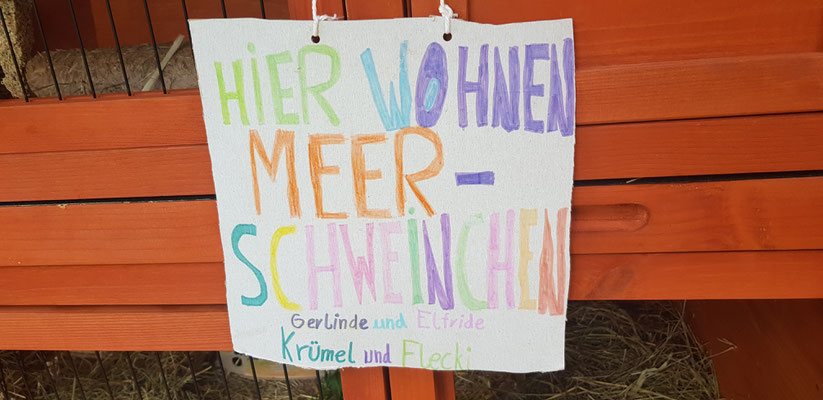 HiER WOHNEN
MEER-
SCHWEiNCHEN
Gerlinde und Elfride
Krümel und Flecki